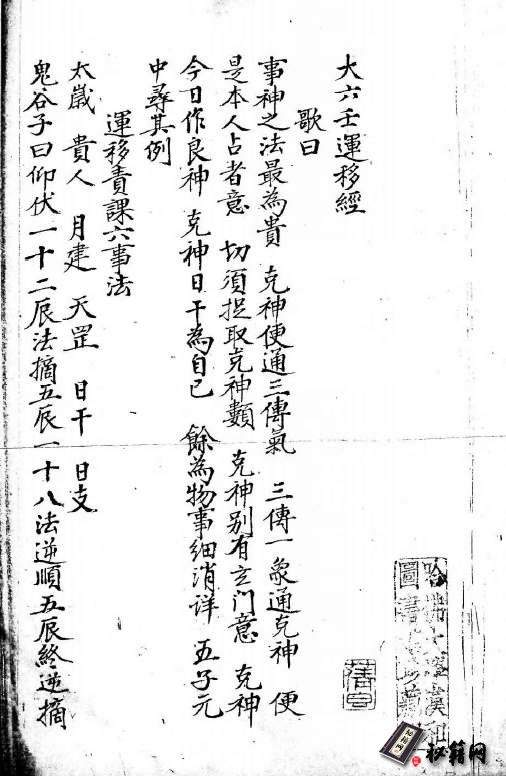 大六壬運移經
歌曰
事神之法最為貴 克神便通三傳氣 三傳一象通克神 便
是本人占者意 切須捉取克神類 克神別有玄门意 克神
今日作良神 克神日干為自己 餘為物事細消详 五子元
中尋其例
運移責課六事法
太歲 貴人 月建 天罡 日干 日支
鬼谷子曰仰伏一十二辰法摘五辰一十八法逆順五辰終逆摘
秘籍网